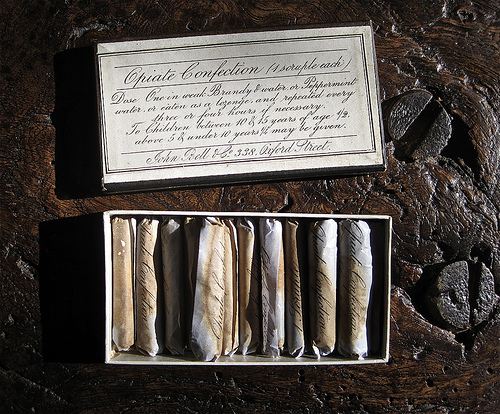 Opiate Confection (1 scruple each)
Dose One in weak Brandy & water, or Peppermint
water, or eaten as a lozenge and repeated every
three or four hours if necessary.
To Children between 10 & 15 years of age 1/2.
above 5 & under 10 years 1/4 may be given.
John Bell & Co. 338, Oxford Street.